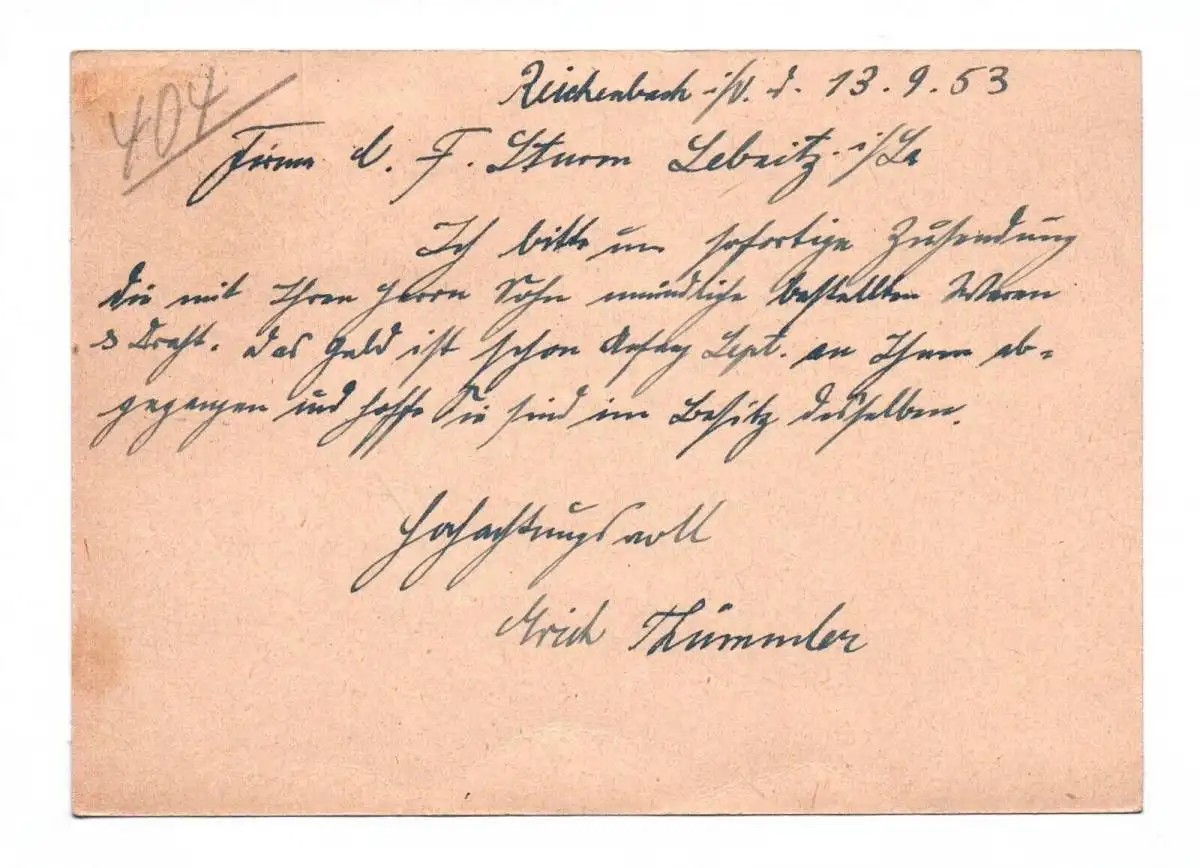 404
Reichenbach i/V. d. 13.9.53
Firma C. F. Sturm Sebnitz i/Sa
Ich bitte um sofortige Zusendung
die mit Ihren Herrn Sohn mündliche bestellten Waren
Draht. Das Geld ist schon Anfang Sept. an Ihnen ab-
gegangen und hoffe Sie sind im Besitz desselben.
Hochachtungsvoll
Erich Thümmler